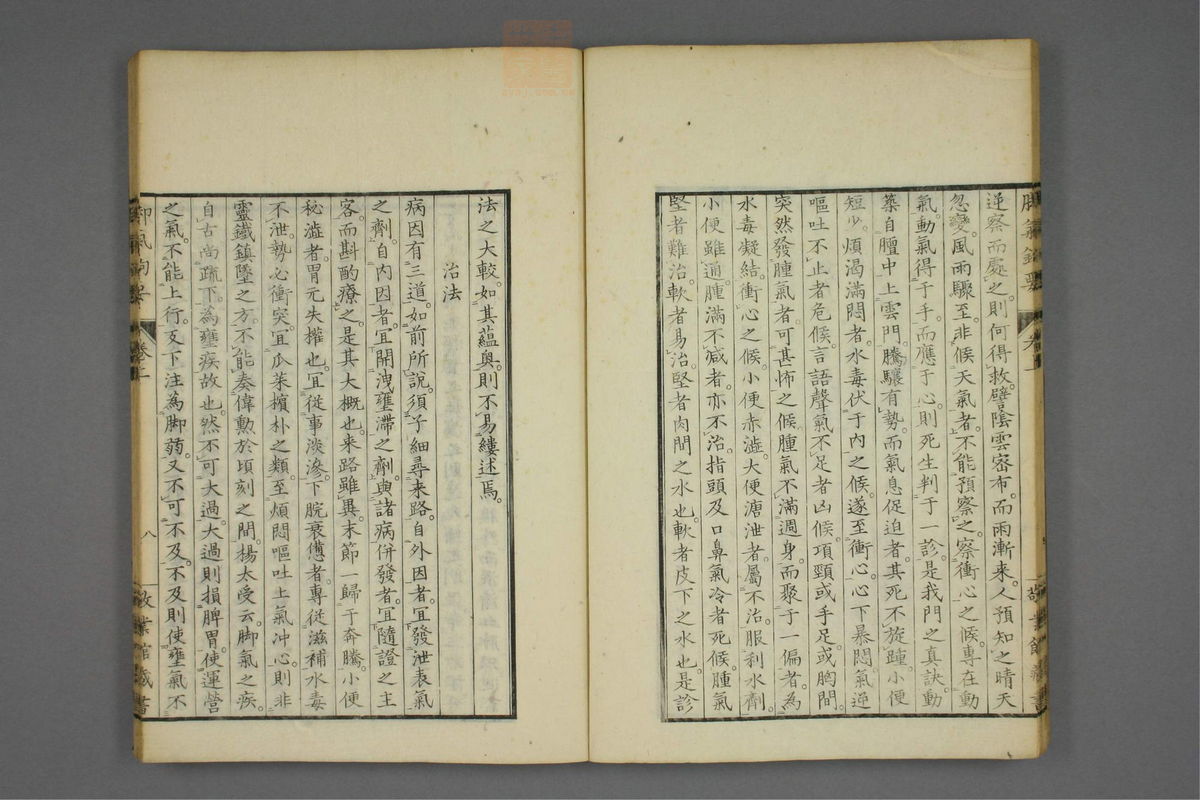 逆察而處之則何得救譬陰雲密布而雨漸来人預知之晴天
忽變風雨驟至非候天氣者不能預察之察衝心之候專在動
氣動氣得于手而應于心則死生判于一診是我門之真訣動
築自膻中上雲門騰驤有勢而氣息促迫者其死不旋踵小便
短少煩渴滿悶者水毒伏于内之候遂至衝心心下暴悶氣逆
嘔吐不止者危候言語聲氣不足者凶候項頸或手足或胸間
突然發腫氣者可甚怖之候腫氣不滿週身而聚于一偏者為
水毒凝結衝心之候小便赤澁大便溏泄者屬不治服利水劑
小便雖通腫滿不減者亦不治指頭及口鼻氣冷者死候腫氣
堅者難治軟者易治堅者肉間之水也軟者皮下之水也是診
法之大較如其蘊奥則不易縷述焉
治法
病因有三道如前所說須子細尋来路自外因者宜發泄表氣
之劑自内因者宜開洩壅滯之劑與諸病併發者宜隨證之主
客而斟酌療之是其大概也来路雖異末節一歸于奔騰小便
秘澁者胃元失權也宜從事淡滲下脘衰憊者專從滋補水毒
不泄勢必衝突宜瓜蒂檳朴之類至煩悶嘔吐上氣冲心則非
靈鐵鎮墜之方不能奏偉勲於頃刻之間楊太受云脚氣之疾
自古尚疏下為壅疾故也然不可大過大過則損脾胃使運營
之氣不能上行反下注為脚弱又不可不及不及則使壅氣不
卷上
八